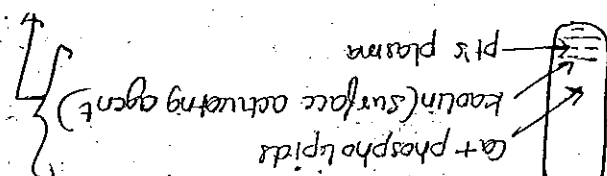 Ca+ phospholipids
kaolin (surface activating agent)
pt's plasma